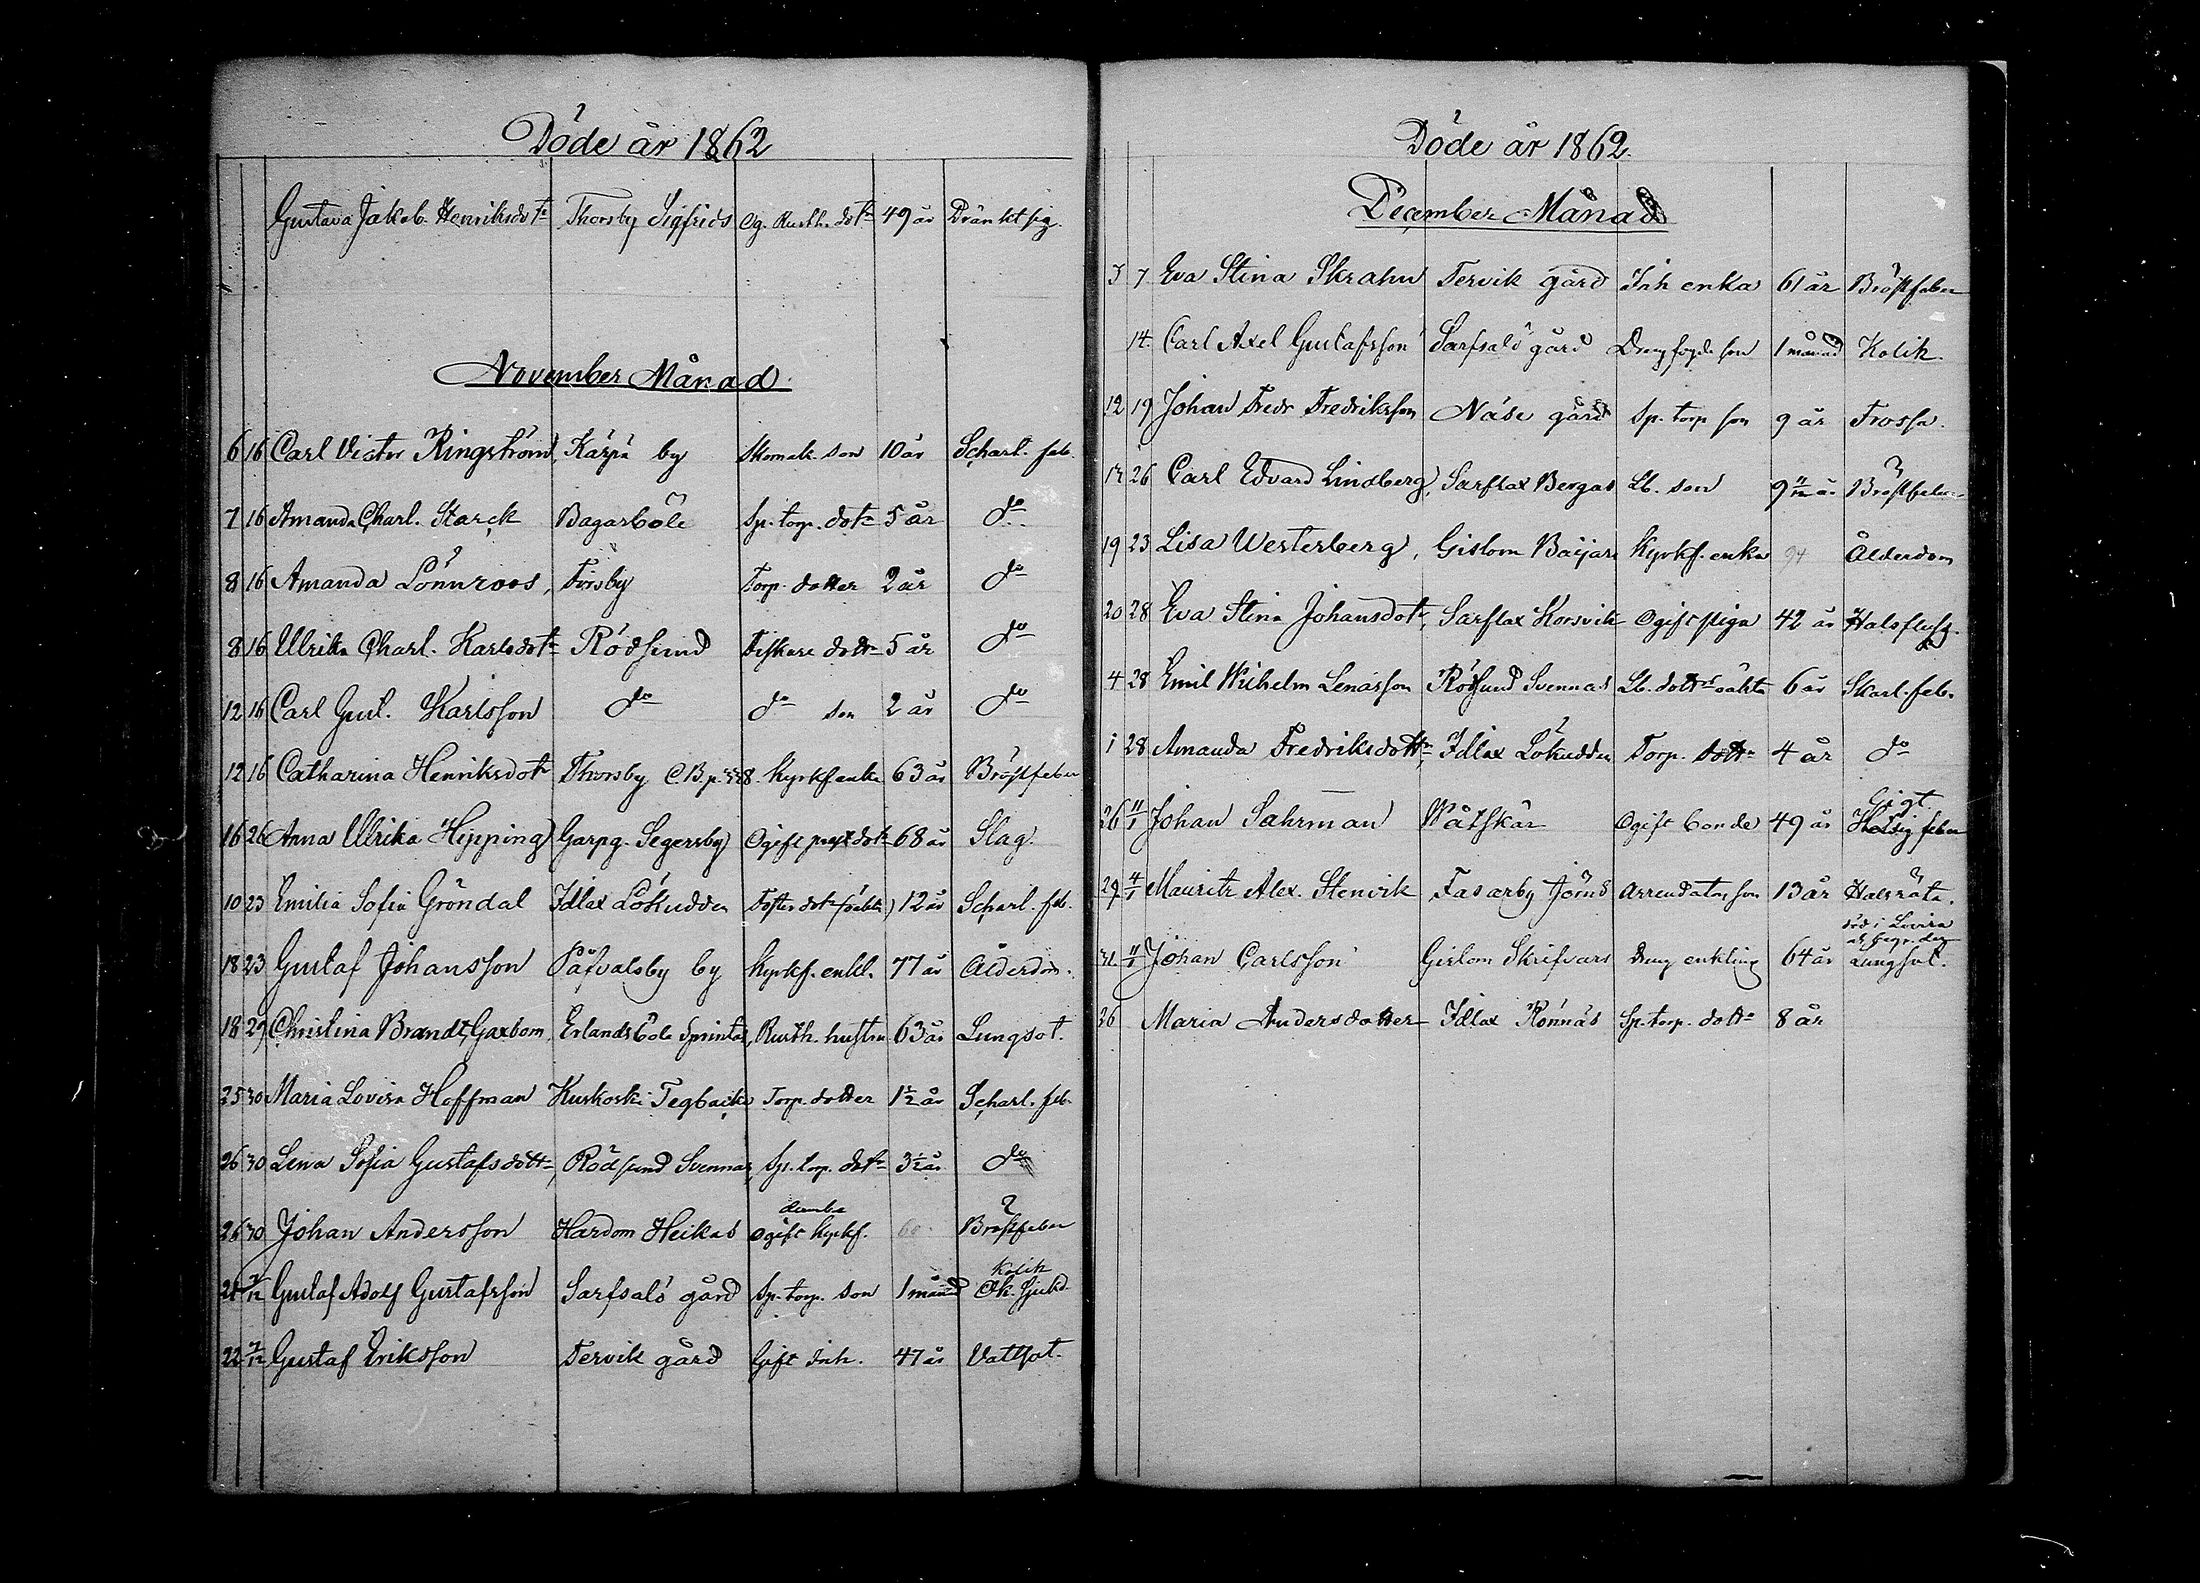 Döde år 1862
Gustava Jakob. Henriksdotr Thorsby Sigfrids Og. Rusth. dotr 49 år Dränkt sig.
November Månad.
6 16 Carl Victor Ringström, Kärpä by Skomak. son 10 år Scharl. feb.
7 16 Amanda Charl. Starck Bagarböle Sp. torp. dotr 5 år do
8 16 Amanda Lönnroos, Forsby Torp. dotter 2 år do
8 16 Ulrika Charl. Karlsdotr Rödsund Fiskare dottr 5 år do
12 16 Carl Gust. Karlsson do do son 2 år do
12 16 Catharina Henriksdotr Thorsby C B. p. 8. Kyrkf enka 63 år Bröstfeber
16 26 Anna Ulrika Hipping Garpg. Segersby Ogift prest dotr 68 år Slag.
10 23 Emilia Sofia Gröndal Idlax Lökudden Foster dotr (oäkta) 12 år Scharl. feb.
18 23 Gustaf Johansson Påfvalsby by Kyrkf. enkl. 77 år Ålderdom.
18 29 Christina Brandt, Gaxbom, Erlandsböle Sprintas, Rusth. hustru 63 år Lungsot.
25 30 Maria Lovisa Hoffman Kuskoski Tegbacka Torp. dotter 1½ år Scharl. feb.
26 30 Lena Sofia Gustafsdottr, Rödsund Svennas, Sp. torp. dotr 3½ år do
26 30 Johan Andersson Hardom Heikas dumbe ogift Kyrkf. 60 Bröstfeber
21 7/12 Gustaf Adolf Gustafsson Sarfsalö gård Sp. torp. son 1 månad Kolik Ok. sjukd.
22 7/12 Gustaf Eriksson Tervik gård Gift Inh. 47 år Vattsot.
Döde år 1862.
December Månad
3 7 Eva Stina Skrahn Tervik gård Inh enka 61 år Bröstfeber
14. Carl Axel Gustafsson Sarfsalö gård Drengfogde son 1 månad Kolik.
12 19 Johan Fredr Fredriksson Näse gård Sp. torp son 9 år Frossa.
14 26 Carl Edvard Lindberg, Sarflax Bergas Lb. son 9 11/12 år Bröstfeber
19 23 Lisa Westerberg, Gislom Baijars Kyrkf. enka 94 Ålderdom
20 28 Eva Stina Johansdotr, Sarflax Korsvik Ogift piga 42 år Halsfluss.
4 28 Emil Wilhelm Lenasson Rödsund Svennas Lb. dottrs oäkta 6 år Skarl. feb.
1 28 Amanda Fredriksdottr, Idlax Lökudden Torp. dottr 4 år do
26 11/1 Johan Sahrman Våtskär Ogift bonde 49 år Gigt. Hetsig feber
29 4/1 Mauritz Alex. Stenvik Fasarby Jörns Arrendators son 13 år Halsröta.
31 11/1 Johan Carlsson Gislom Skrifvars Dreng enkling 64 år död i Lovisa o begr. der Lungsot.
26 Maria Andersdotter Idlax Rönnäs Sp. torp. dottr 8 år